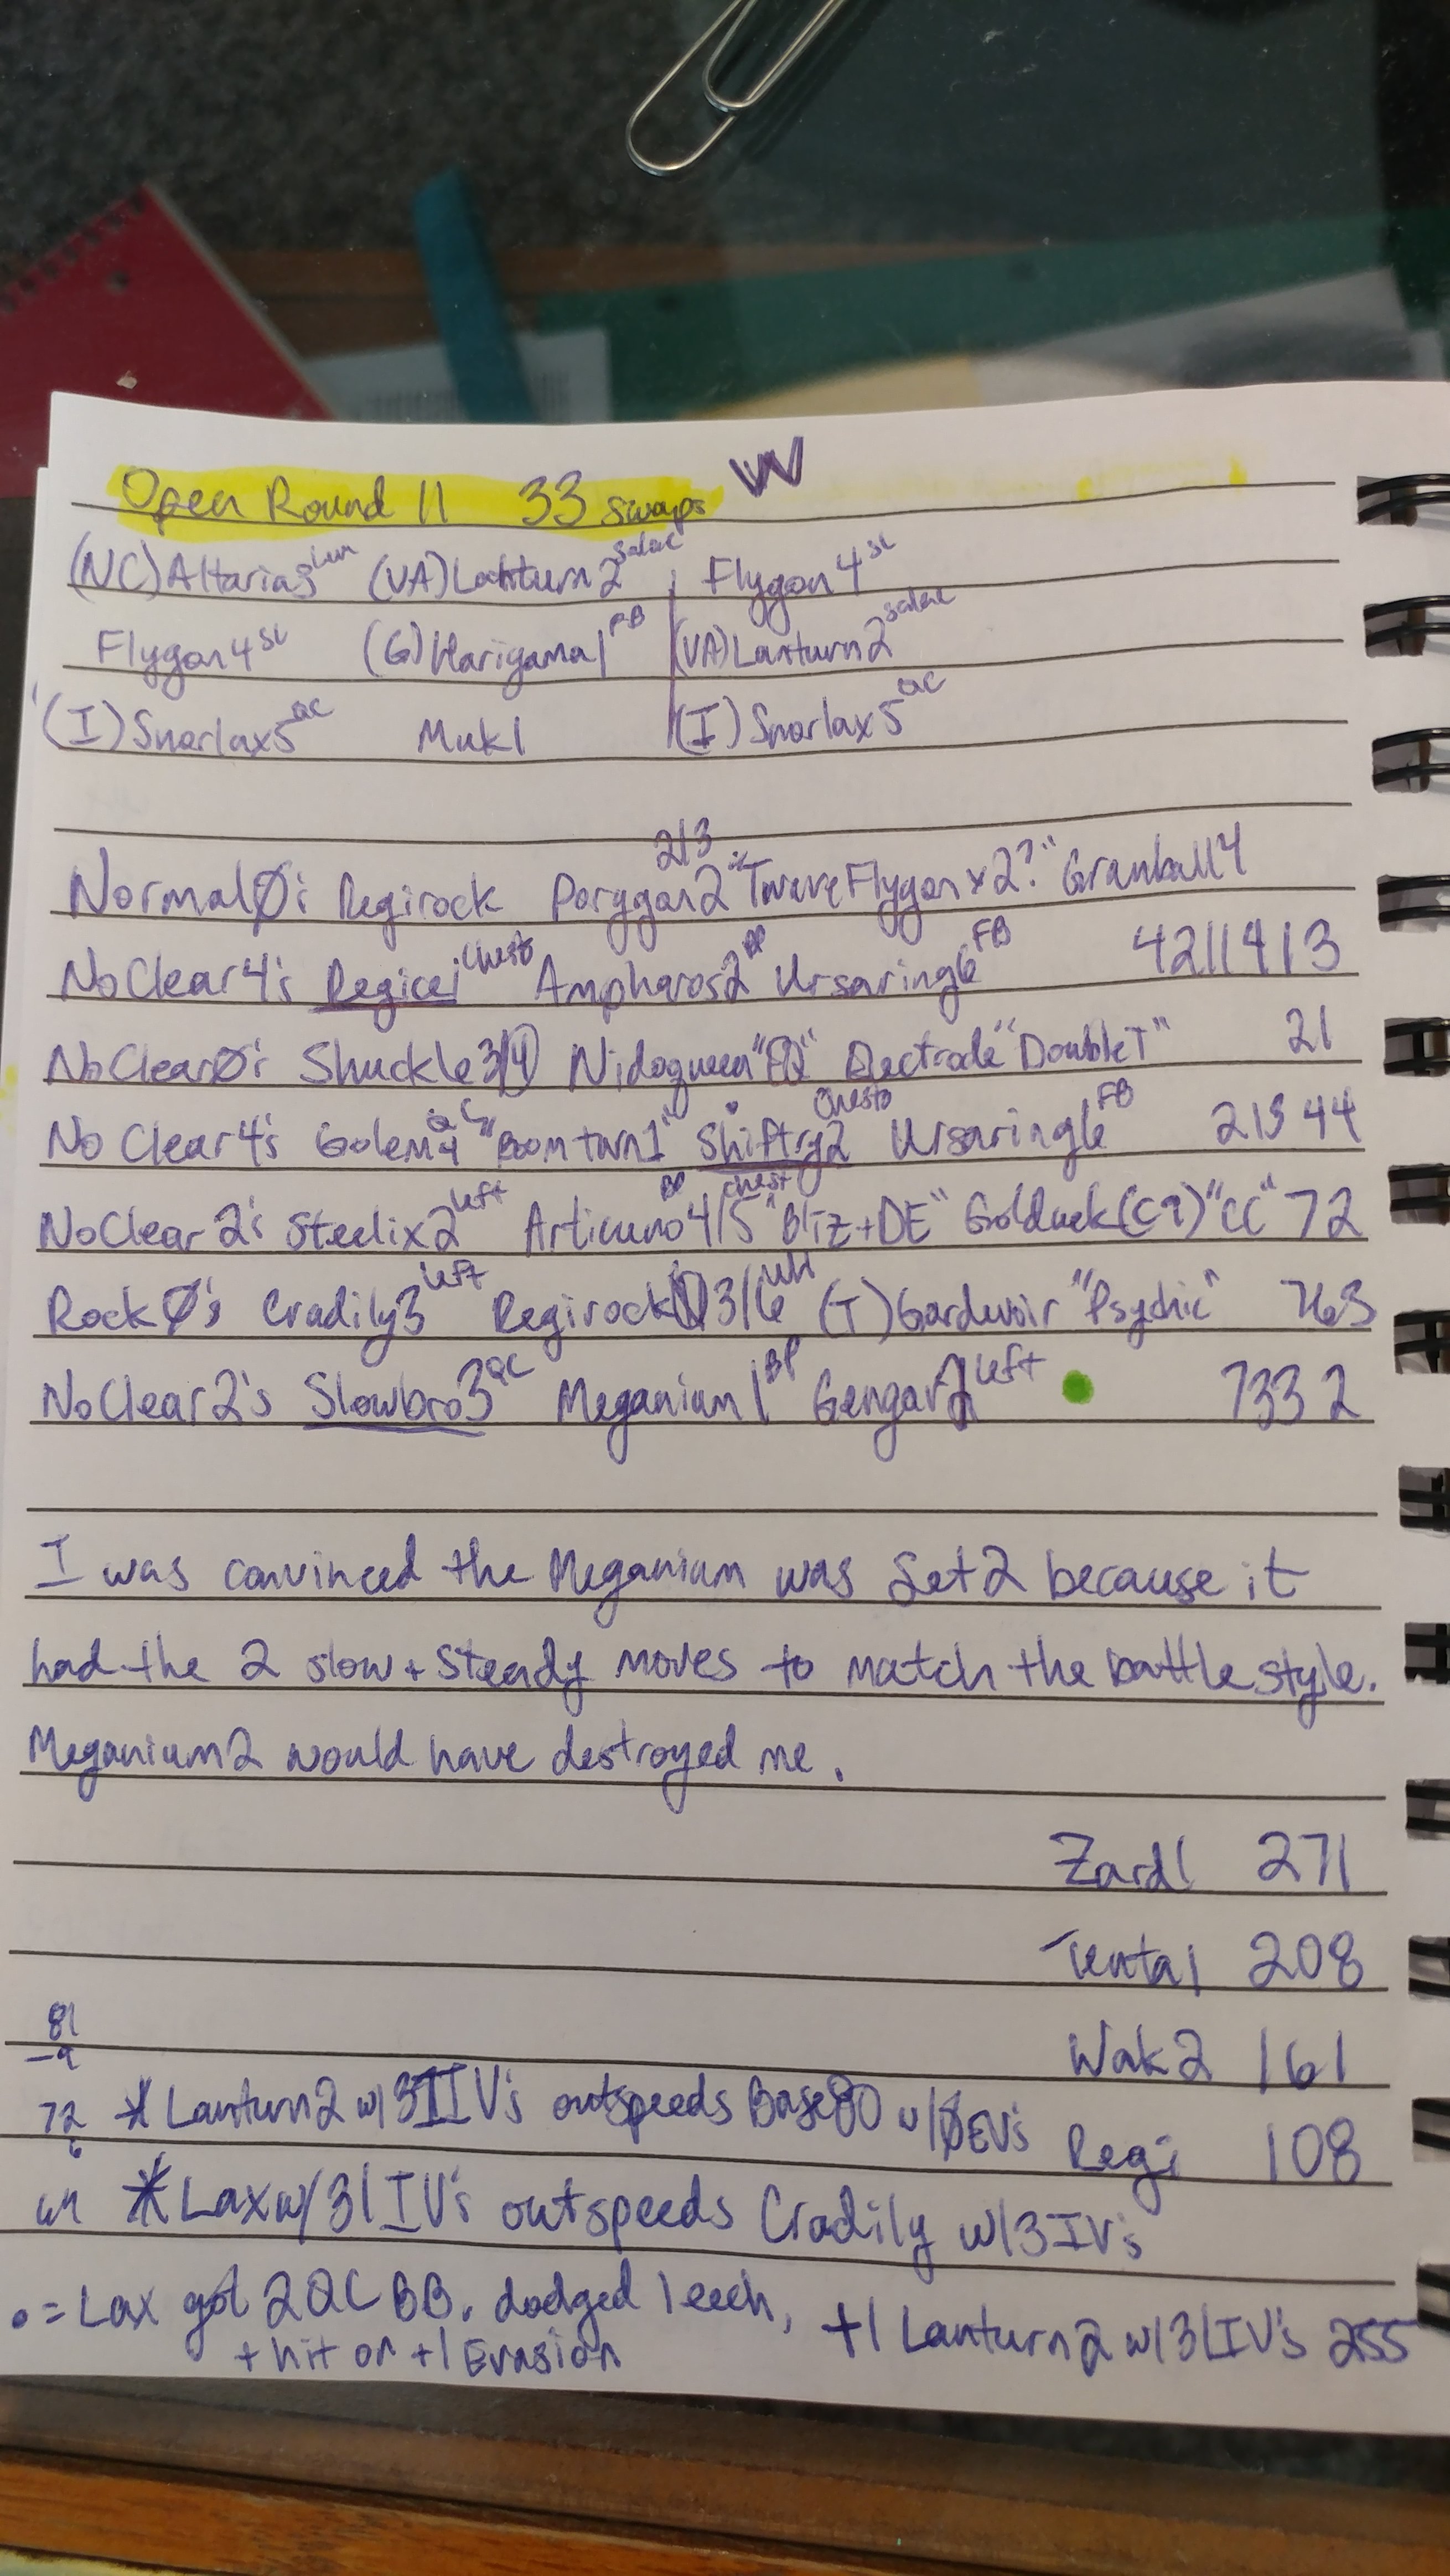 Open Round 11 33 swaps W
(NC)Altaria3 Lum (VA)Lanturn2 Salac Flygon4 SL
Flygon4 SL (G)Harigama1 FB (VA)Lanturn2 Salac
(I)Snorlax5 QC Muk1 (I)Snorlax5 QC
Normal0: Regirock Porygon2 2/3 "Twave Flygon x2?" Granbull4
NoClear4's Regice1 Chesto Ampharos2 BP Ursaring6 FB 4211413
NoClear0: Shuckle3/4 Nidoqueen "EQ" Electrode "Double T" 21
No Clear4's Golem4 QC "Boom turn1" Shiftry2 Chesto Ursaring6 FB 21344
NoClear2's Steelix2 left Articuno4/5 BP chest "Bliz+DE" Golduck(C9) "CC" 72
Rock0's Cradily3 left Regirock 3/6 (T)Gardevoir "Psychic" 763
NoClear2's Slowbro3 QC Meganium1 BP Gengar2 left 7332
I was convinced the Meganium was Set 2 because it
had the 2 slow + steady moves to match the battle style.
Meganium2 would have destroyed me.
Zard1 271
Tenta1 208
Wak2 161
81
-9
72 *Lanturn2 w/31IV's outspeeds Base80 w/0EV's Regi 108
6
*Lax w/31IV's outspeeds Cradily w/3IV's
• = Lax got 2QC BB. dodged leech, +1 Lanturn2 w/31IV's 255
+ hit on +1 Evasion